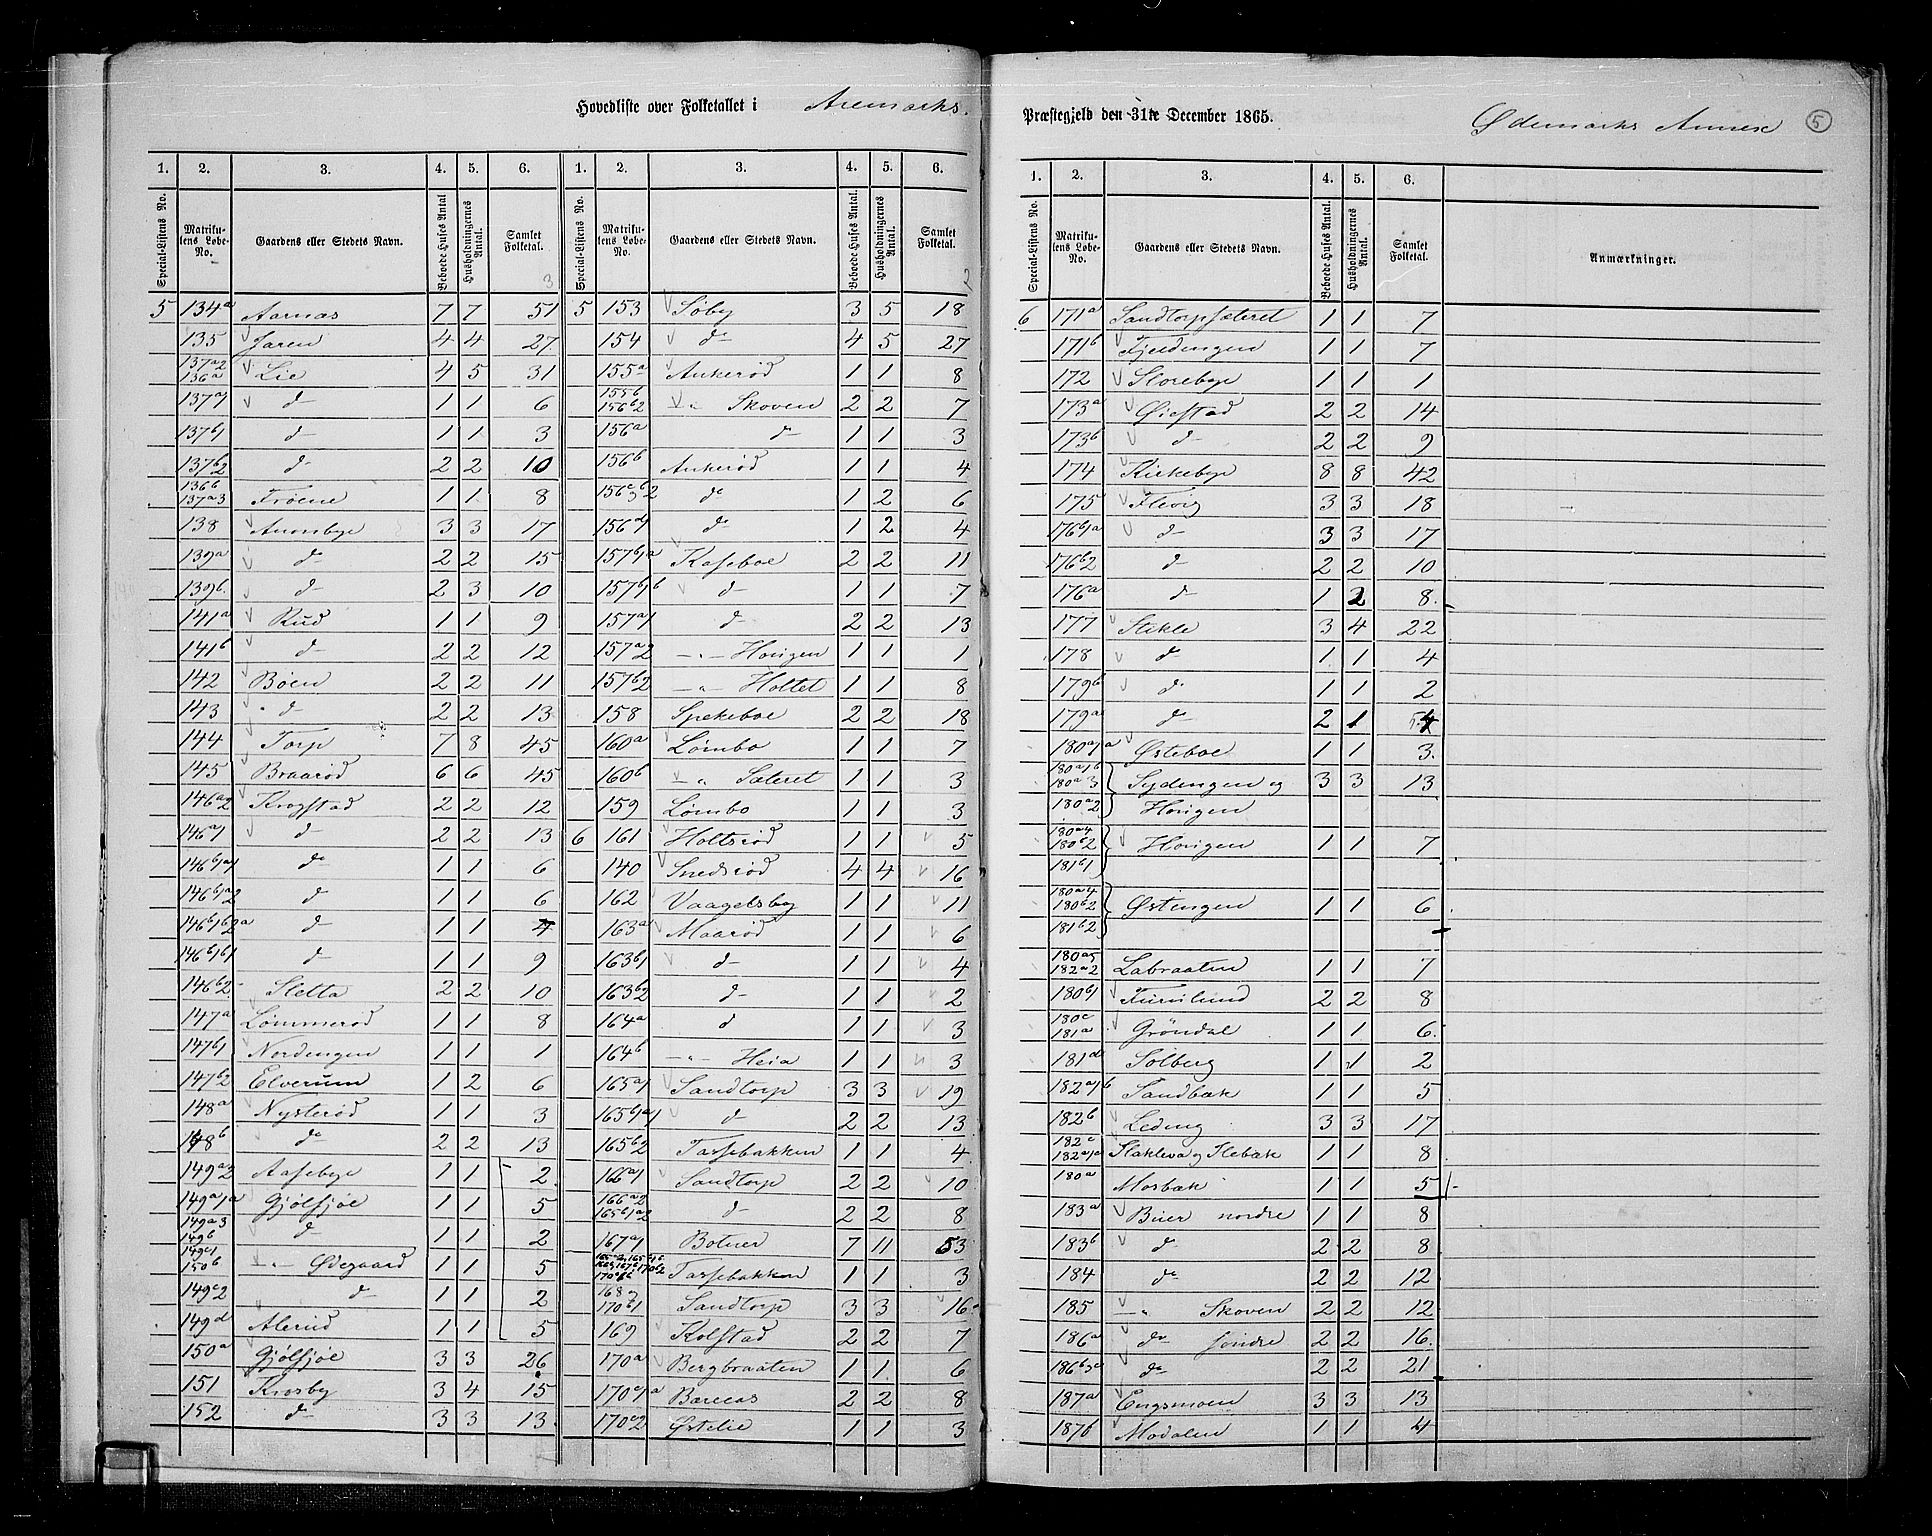 Hovedliste over Folketallet i Aremarks.
Præstegjeld den 31te December 1865.
Ødemarks Annex
5
1. 2. 3. 4. 5. 6. 1. 2. 3. 4. 5. 6.
Special-Listens No. Matrikulens Løbe-No. Gaardens eller Stedets Navn. Beboede Huses Antal Husholdningernes Antal. Samlet Folketal. Special-Listens No. Matrikulens Løbe-No. Gaardens eller Stedets Navn. Beboede Huses Antal. Husholdningernes Antal. Samlet Folketal.
3 2
5 134a Aarnæs 7 7 51
135 Jaren 4 4 27
137a2 136a Lie 4 5 31
137a1 d 1 1 6
137b1 d 1 1 3
137b2 d 2 2 10
136b 137a3 Frøene 1 1 8
138 Aumbye 3 3 17
139a d 2 2 15
139b. d 2 3 10
141a Rud 1 1 9
141b d 2 2 12
142 Bøen 2 2 11
143 d 2 2 13
144 Torp 7 8 45
145 Braarød 6 6 45
146a2 Krogstad 2 2 12
146a1 d 2 2 13
146b1a1 do 1 1 6
146b1a2 d 1 1 6
146b1b2a d 1 1 4
146b1b1 d 1 1 9
146b2 Sletta 2 2 10
147a Lømmerød 1 1 8
147b1 Nordengen 1 1 1
147b2 Elverum 1 2 6
148a Nysterød 1 1 3
148b do 2 2 13
149a2 Aasebye 1 1 2
149a1a Gjølsjøe 1 1 5
149a3 149b d 1 1 2
149c1 150b — " — Ødegaard 1 1 5
149c2 d 1 1 2
149d Alerud 1 1 5
150a Gjølsjøe 3 3 26
151 Krosby 3 4 15
152 d 3 3 13
5 153 Søby 3 5 18
154 do 4 5 27
155a Ankerød 1 1 8
155b 156b2 — " Skoven 2 2 7
156a d 1 1 3
156b Ankerød 1 1 4
do 1 2 6
do 1 2 4
157b1a Kaseboe 2 2 11
157b1b d 1 1 7
157a1 d 2 2 13
157a2 — " — Hovigen 1 1 1
157b2 — " Holtet 1 1 8
158 Spekeboe 2 2 18
160a Lømbo 1 1 7
160b — " Sæteret 1 1 3
159 Lømbo 1 1 3
6 161 Holtsrød 1 1 5
140 Snedsrød 4 4 16
162 Vaagelsby 1 1 11
163a Maarød 1 1 6
163b1 d 1 1 4
163b2 d 1 1 2
164a d 1 1 3
164b — " — Heia 1 1 3
165a1 Sandtorp 3 3 19
165b1a1 d 2 2 13
165b2 Tassebakken 1 1 4
166a1 Sandtorp 2 2 10
166a2 165b1a2 d 2 2 8
167a1 Botner 7 11 53
Tassebakken 1 1 3
170b1 Sandtorp 3 3 16
169 Kolstad 2 2 7
170a Bergbraaten 1 1 6
170c1a Bærenæs 2 2 8
170c2 Østelie 1 1 3
1. 2. 3. 4. 5. 6.
Special-Listens No. Matrikulens Løbe-No. Gaardens eller Stedets Navn. Beboede Huses Antal. Husholdningernes Antal. Samlet Folketal. Anmærkninger.
6 171a Sandtorpsæteret 1 1 7
171b Fjeldengen 1 1 7
172 Storebye 1 1 1
173a Øiestad 2 2 14
173b d 2 2 9
174 Kirkebye 8 8 42
175 Flovig 3 3 18
176b1a d 3 3 17
176b2 d 2 2 10
176a d 1 2 8.
177 Stikle 3 4 22
178 d 1 1 4
179b d 1 1 2
179a do 2 1 4
180a1a Østeboe 1 1 3.
180a1b 180a3 Sydengen og 3 3 13
180a2 Hovigen
180a4 180b2 181b1 Hovigen 1 1 7
180a4 180b2 181b2 Østengen 1 1 6
180a5 182a2 Labraaten 1 1 7
180b1 Furulund 2 2 8
180c 181a Grøndal 1 1 6
181d Solberg 1 1 2
182a1b Sandbæk 1 1 5
182b Leding 3 3 17
182c 182a1a Slakleva og Ilebæk 1 1 8
180a Mosbæk 1 1 5
183a Buer nordre 1 1 8
183b d 2 2 8
184 do 2 2 12
185 — " Skoven 2 2 12
186a do søndre 2 2 16.
do 2 2 21
187a Engsmoen 3 3 13
187b Modalen 1 1 4